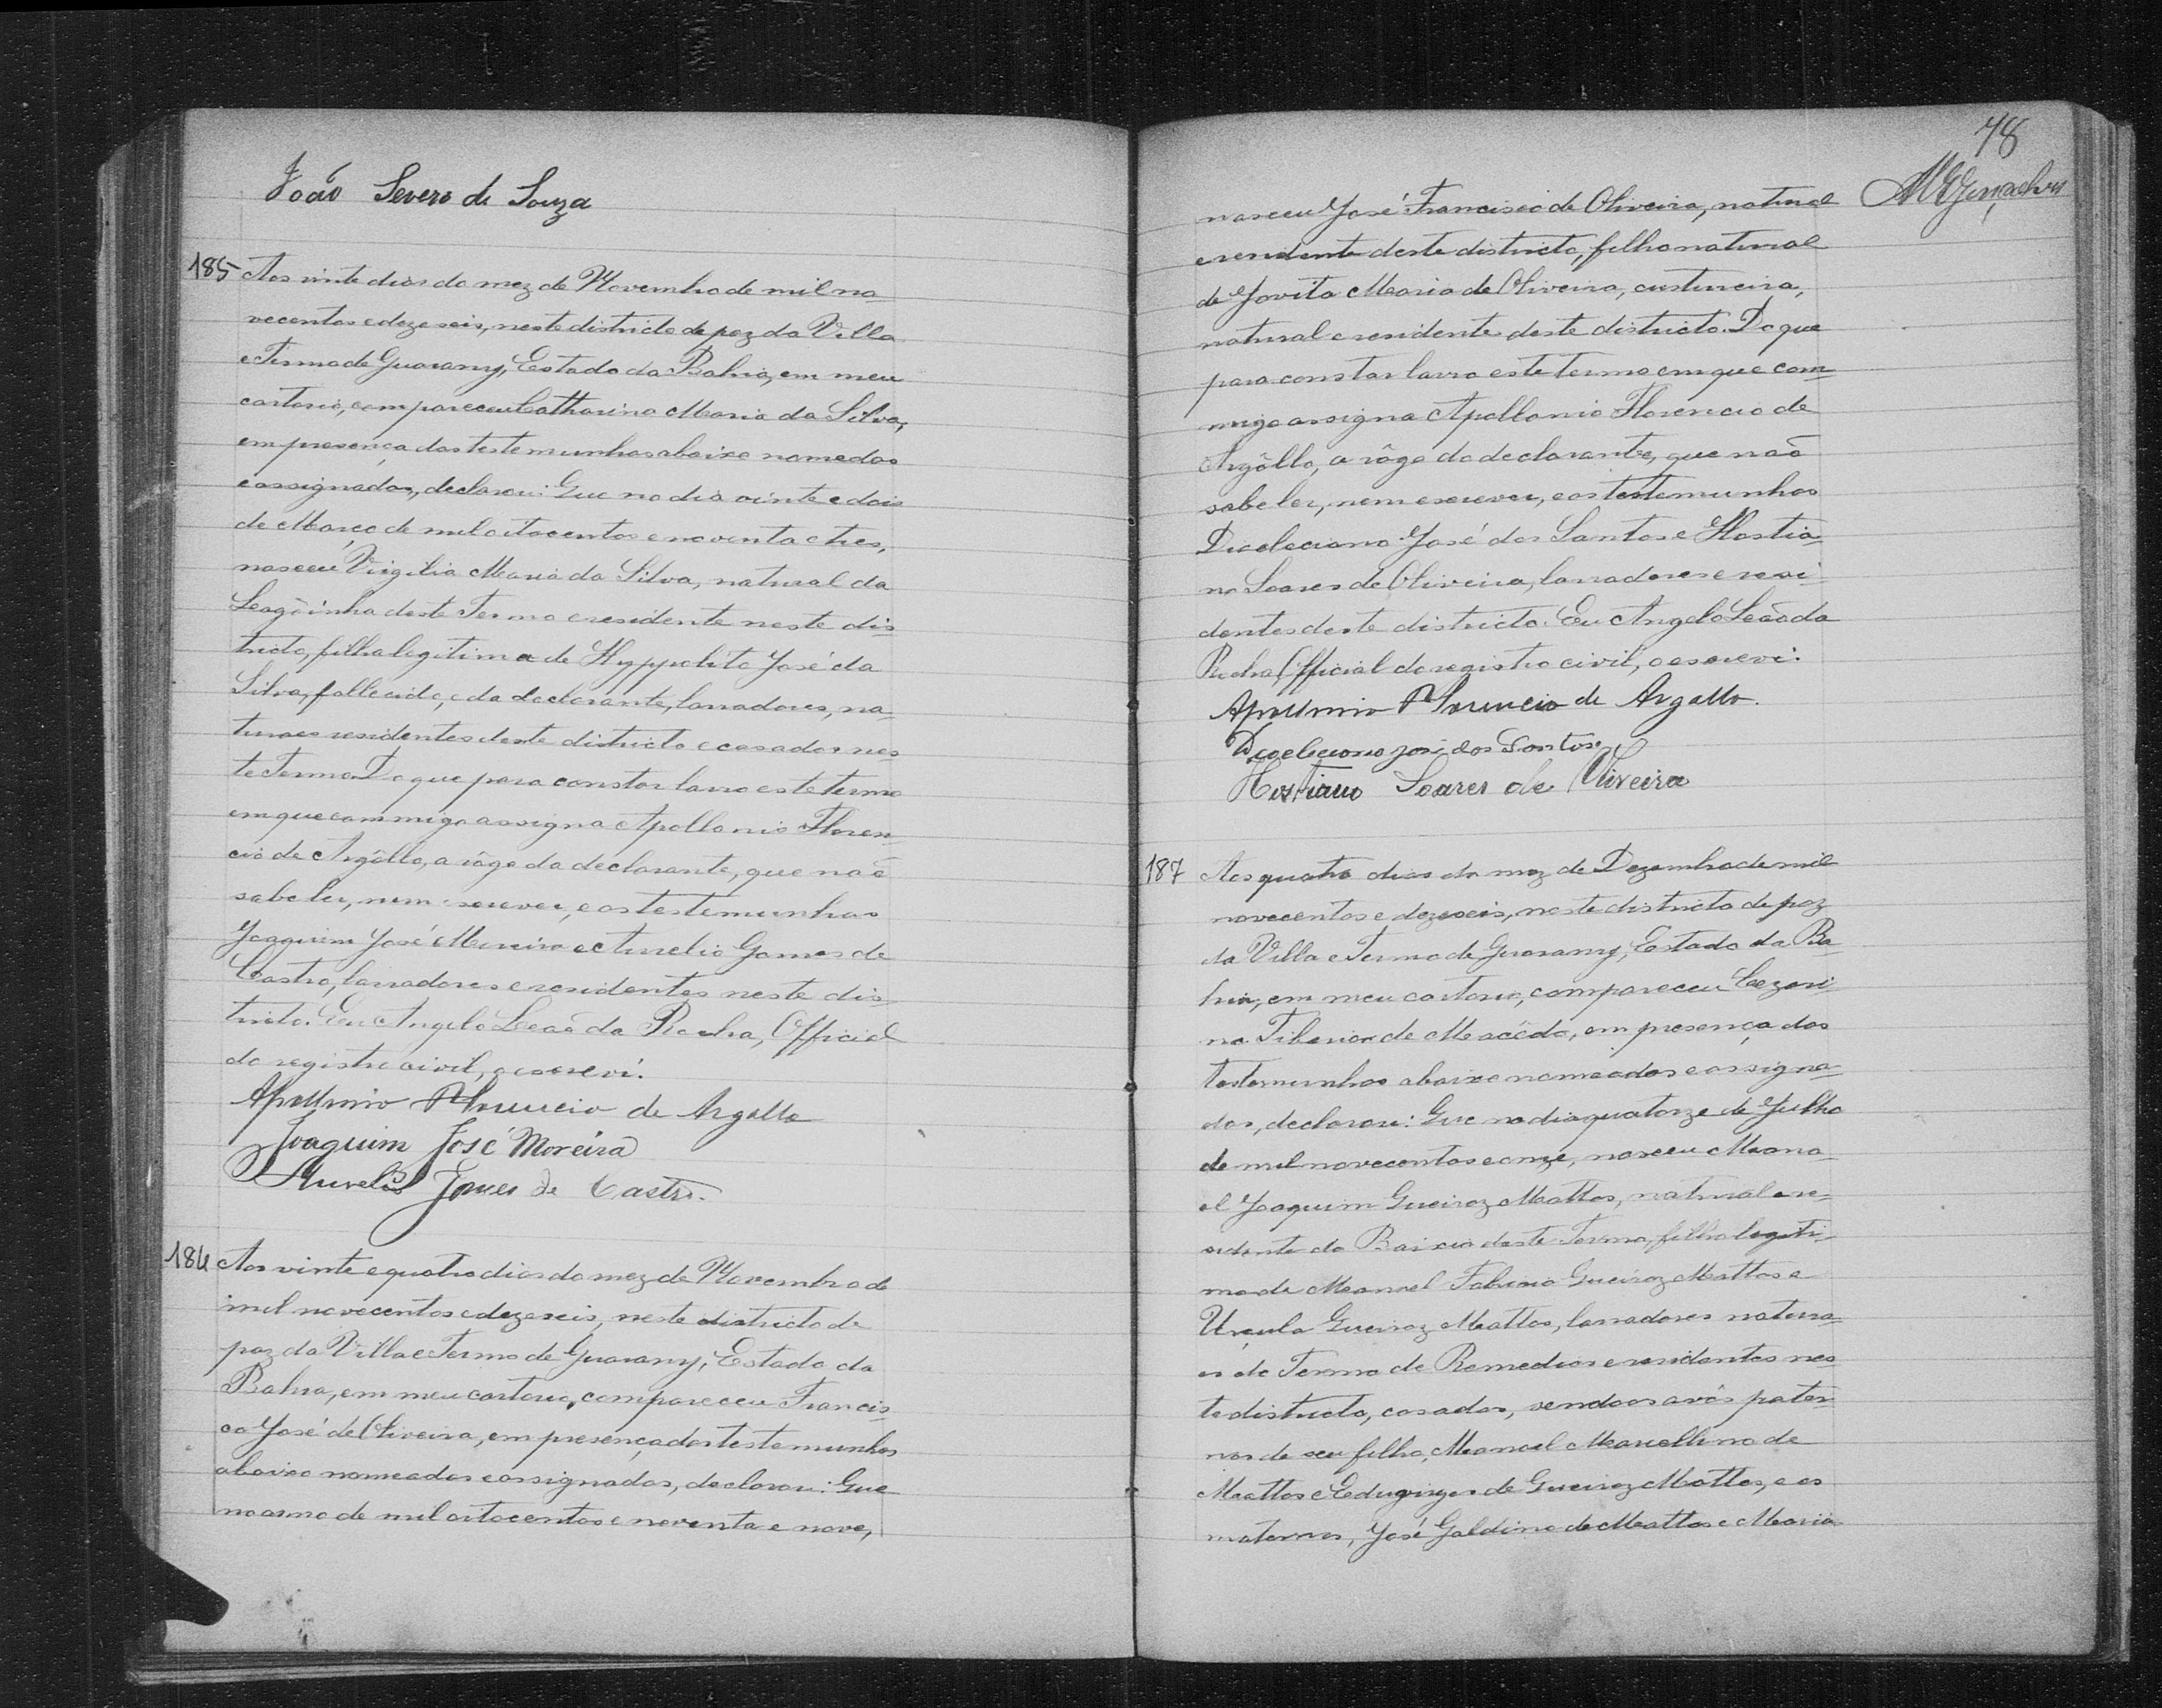 João Severo de Souza
185 Aos vinte dias do mez de Novembro de mil no-
vecentos e dezeseis, neste districto de paz da Villa
e Termo de Guarany, Estado da Bahia, em meu
cartorio, compareceu Catharina Maria da Silva,
em presença das testemunhas abaixo nomedas
e assignadas, declarou: Que no dia vinte e dois
de Março de mil oitocentos e noventa e tres,
nasceu Virgilia Maria da Silva, natural da
Lagôinha deste Termo e residente neste dis-
tricto, filha legitima de Hyppolito José da
Silva, fallecido, e da declarante, lavradores, na-
turaes residentes deste districto e casados nes-
te Termo. Do que para constar lavro este termo
em que commigo assigna Apollonio Floren-
cio de Argôllo, a rôgo da declarante, que não
sabe ler, nem escrever, e as testemunhas
Joaquim José Moreira e Aurelio Gomes de
Castro, lavradores e residentes neste dis-
tricto. Eu Angelo Leão da Rocha, Official
do registro civil, o escrevi.
Apollonio Florencio de Argollo
Joaquim José Moreira
Aurelio Gomes de Castro.
186 Aos vinte e quatro dias do mez de Novembro de
mil novecentos e dezeseis, neste districto de
paz da Villa e Termo de Guarany, Estado da
Bahia, em meu cartorio, compareceu Francis-
co José de Oliveira, em presença das testemunhas
abaixo nomeadas e assignadas, declarou: Que
no anno de mil oitocentos e noventa e nove,
78
MGGonçalves
nasceu José Francisco de Oliveira, natural
e residente deste districto, filho natural
de Jovita Maria de Oliveira, custureira,
natural e residente deste districto. Do que
para constar lavro este termo em que com-
migo assigna Apollonio Florencio de
Argôllo, a rôgo do declarante, que não
sabe ler, nem escrever, e as testemunhas
Diocleciano José dos Santos e Hostia-
no Soares de Oliveira, lavradores e resi-
dentes deste districto. Eu Angelo Leão da
Rocha, Official do registro civil, o escrevi.
Apollonio Florencio de Argollo.
Diocleciano José dos Santos
Hostiano Soares de Oliveira
187 Aos quatro dias do mez de Dezembro de mil
novecentos e dezeseis, neste districto de paz
da Villa e Termo de Guarany, Estado da Ba-
hia, em meu cartorio, compareceu Cezari-
no Tiberio de Macêdo, em presença das
testemunhas abaixo nomeadas e assigna-
das, declarou: Que no dia quatorze de Julho
de mil novecentos e onze, nasceu Mano-
el Joaquim Queiroz Mattos, natural e re-
sidente do Baixio deste Termo, filho legiti-
mo de Manoel Queiroz Mattos e
Urçula Queiroz Mattos, lavradores natura-
es do Termo de Remedios e residentes nes-
te districto, casados, sendo os avós pater-
nos de seu filho, Manoel Marcellino de
Mattos e Eduvirges de Queiroz Mattos, e os
maternos, José Galdino de Mattos e Maria